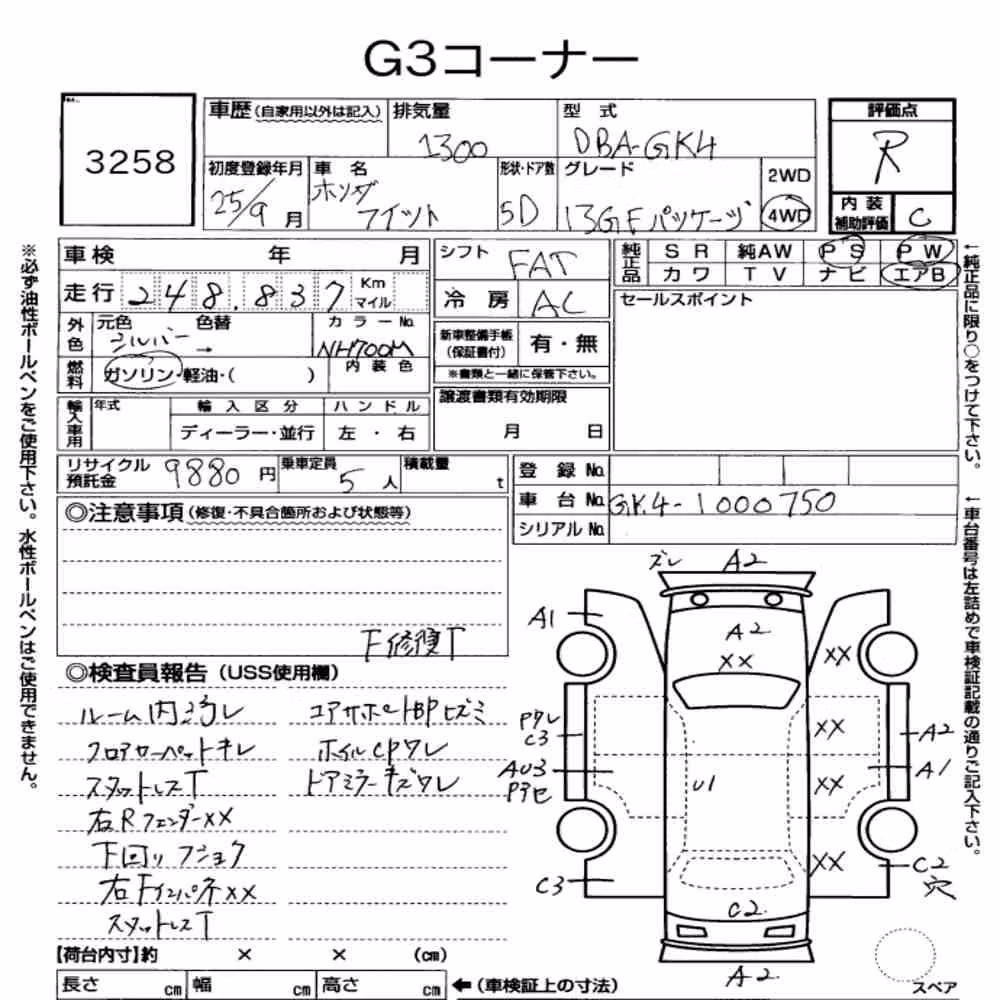 G3コーナー
3258
車歴(自家用以外は記入)
排気量
1300
型式
DBA-GK4
評価点
R
初度登録年月
25/9月
車名
ホンダ
フィット
形状・ドア数
5D
グレード
13G Fパッケージ
2WD
4WD
内装
補助評価
C
※必ず油性ボールペンをご使用下さい。水性ボールペンはご使用できません。
車検 年 月
走行 248.837 Km
マイル
外色
元色 色替
シルバー →
カラーNo.
NH700M
燃料
ガソリン・軽油・( )
内装色
輸入車用
年式
輸入区分
ディーラー・並行
ハンドル
左・右
シフト
FAT
冷房
AC
新車整備手帳
(保証書付)
有・無
※書類と一緒に保管下さい。
譲渡書類有効期限
月 日
純正品
SR 純AW PS PW
カワ TV ナビ エアB
セールスポイント
←純正品に限り○をつけて下さい。
リサイクル
預託金
9880円
乗車定員
5人
積載量
t
登録No.
車台No. GK4-1000750
シリアルNo.
←車台番号は左詰めで車検証記載の通りご記入下さい。
◎注意事項(修復・不具合箇所および状態等)
下修復T
◎検査員報告(USS使用欄)
ルーム内汚レ
フロアカーペットキレ
スタットレスT
右Rフェンダーxx
下回リフショク
右Fインパネxx
スタットレスT
コアサポートBPヒズミ
ホイルCPワレ
ドアミラーキズワレ
ズレ
A2
A1
A2
XX
XX
Pワレ
C3
XX
A2
AU3
U1
XX
A1
XX
C3
C2
穴
C2
A2
【荷台内寸】約 × × (cm)
長さ cm
幅 cm
高さ cm
←(車検証上の寸法)
スペア